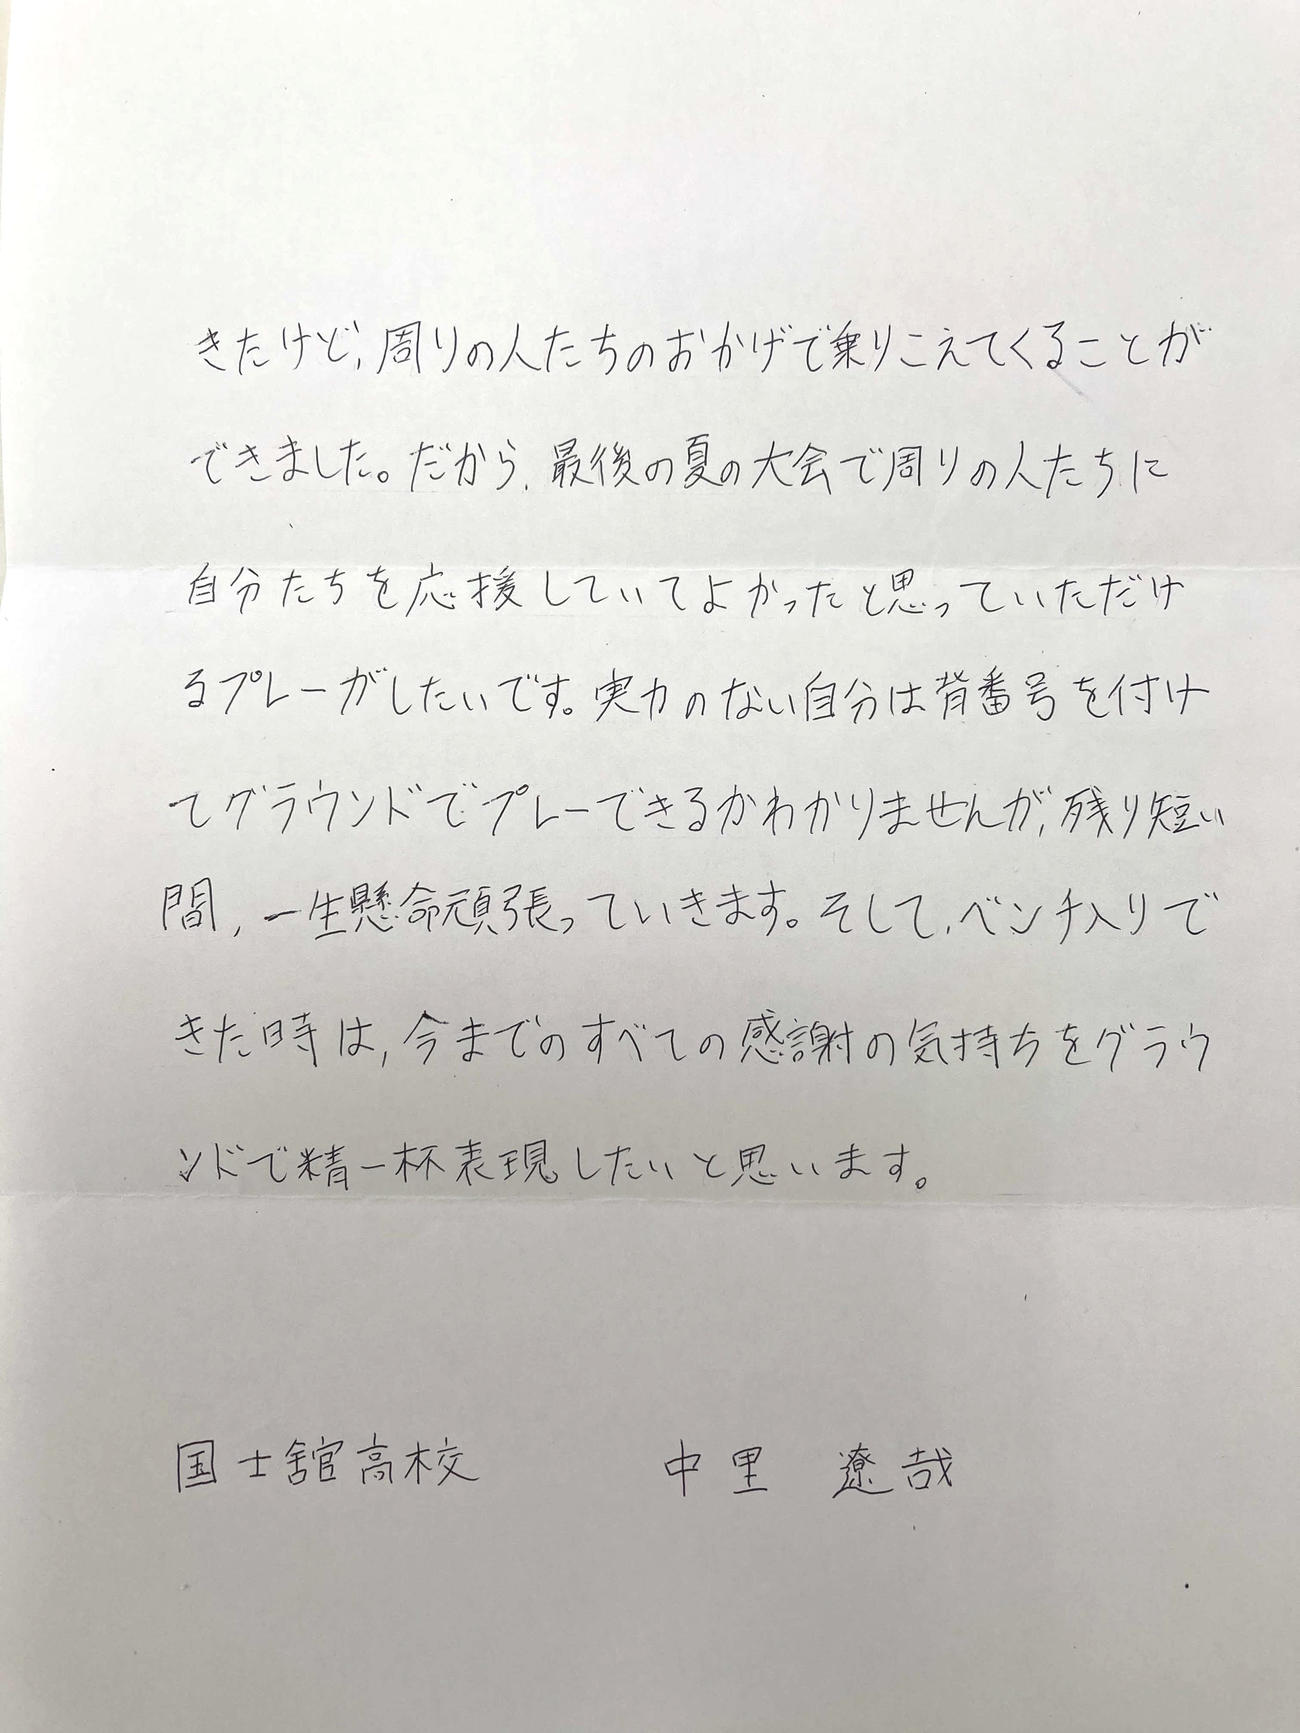 きたけど,周りの人たちのおかげで乗りこえてくることが
できました。だから,最後の夏の大会で周りの人たちに
自分たちを応援していてよかったと思っていただけ
るプレーがしたいです。実力のない自分は背番号を付け
てグラウンドでプレーできるかわかりませんが,残り短い
間,一生懸命頑張っていきます。そして,ベンチ入りで
きた時は,今までのすべての感謝の気持ちをグラウ
ンドで精一杯表現したいと思います。
国士舘高校 中里 遼哉